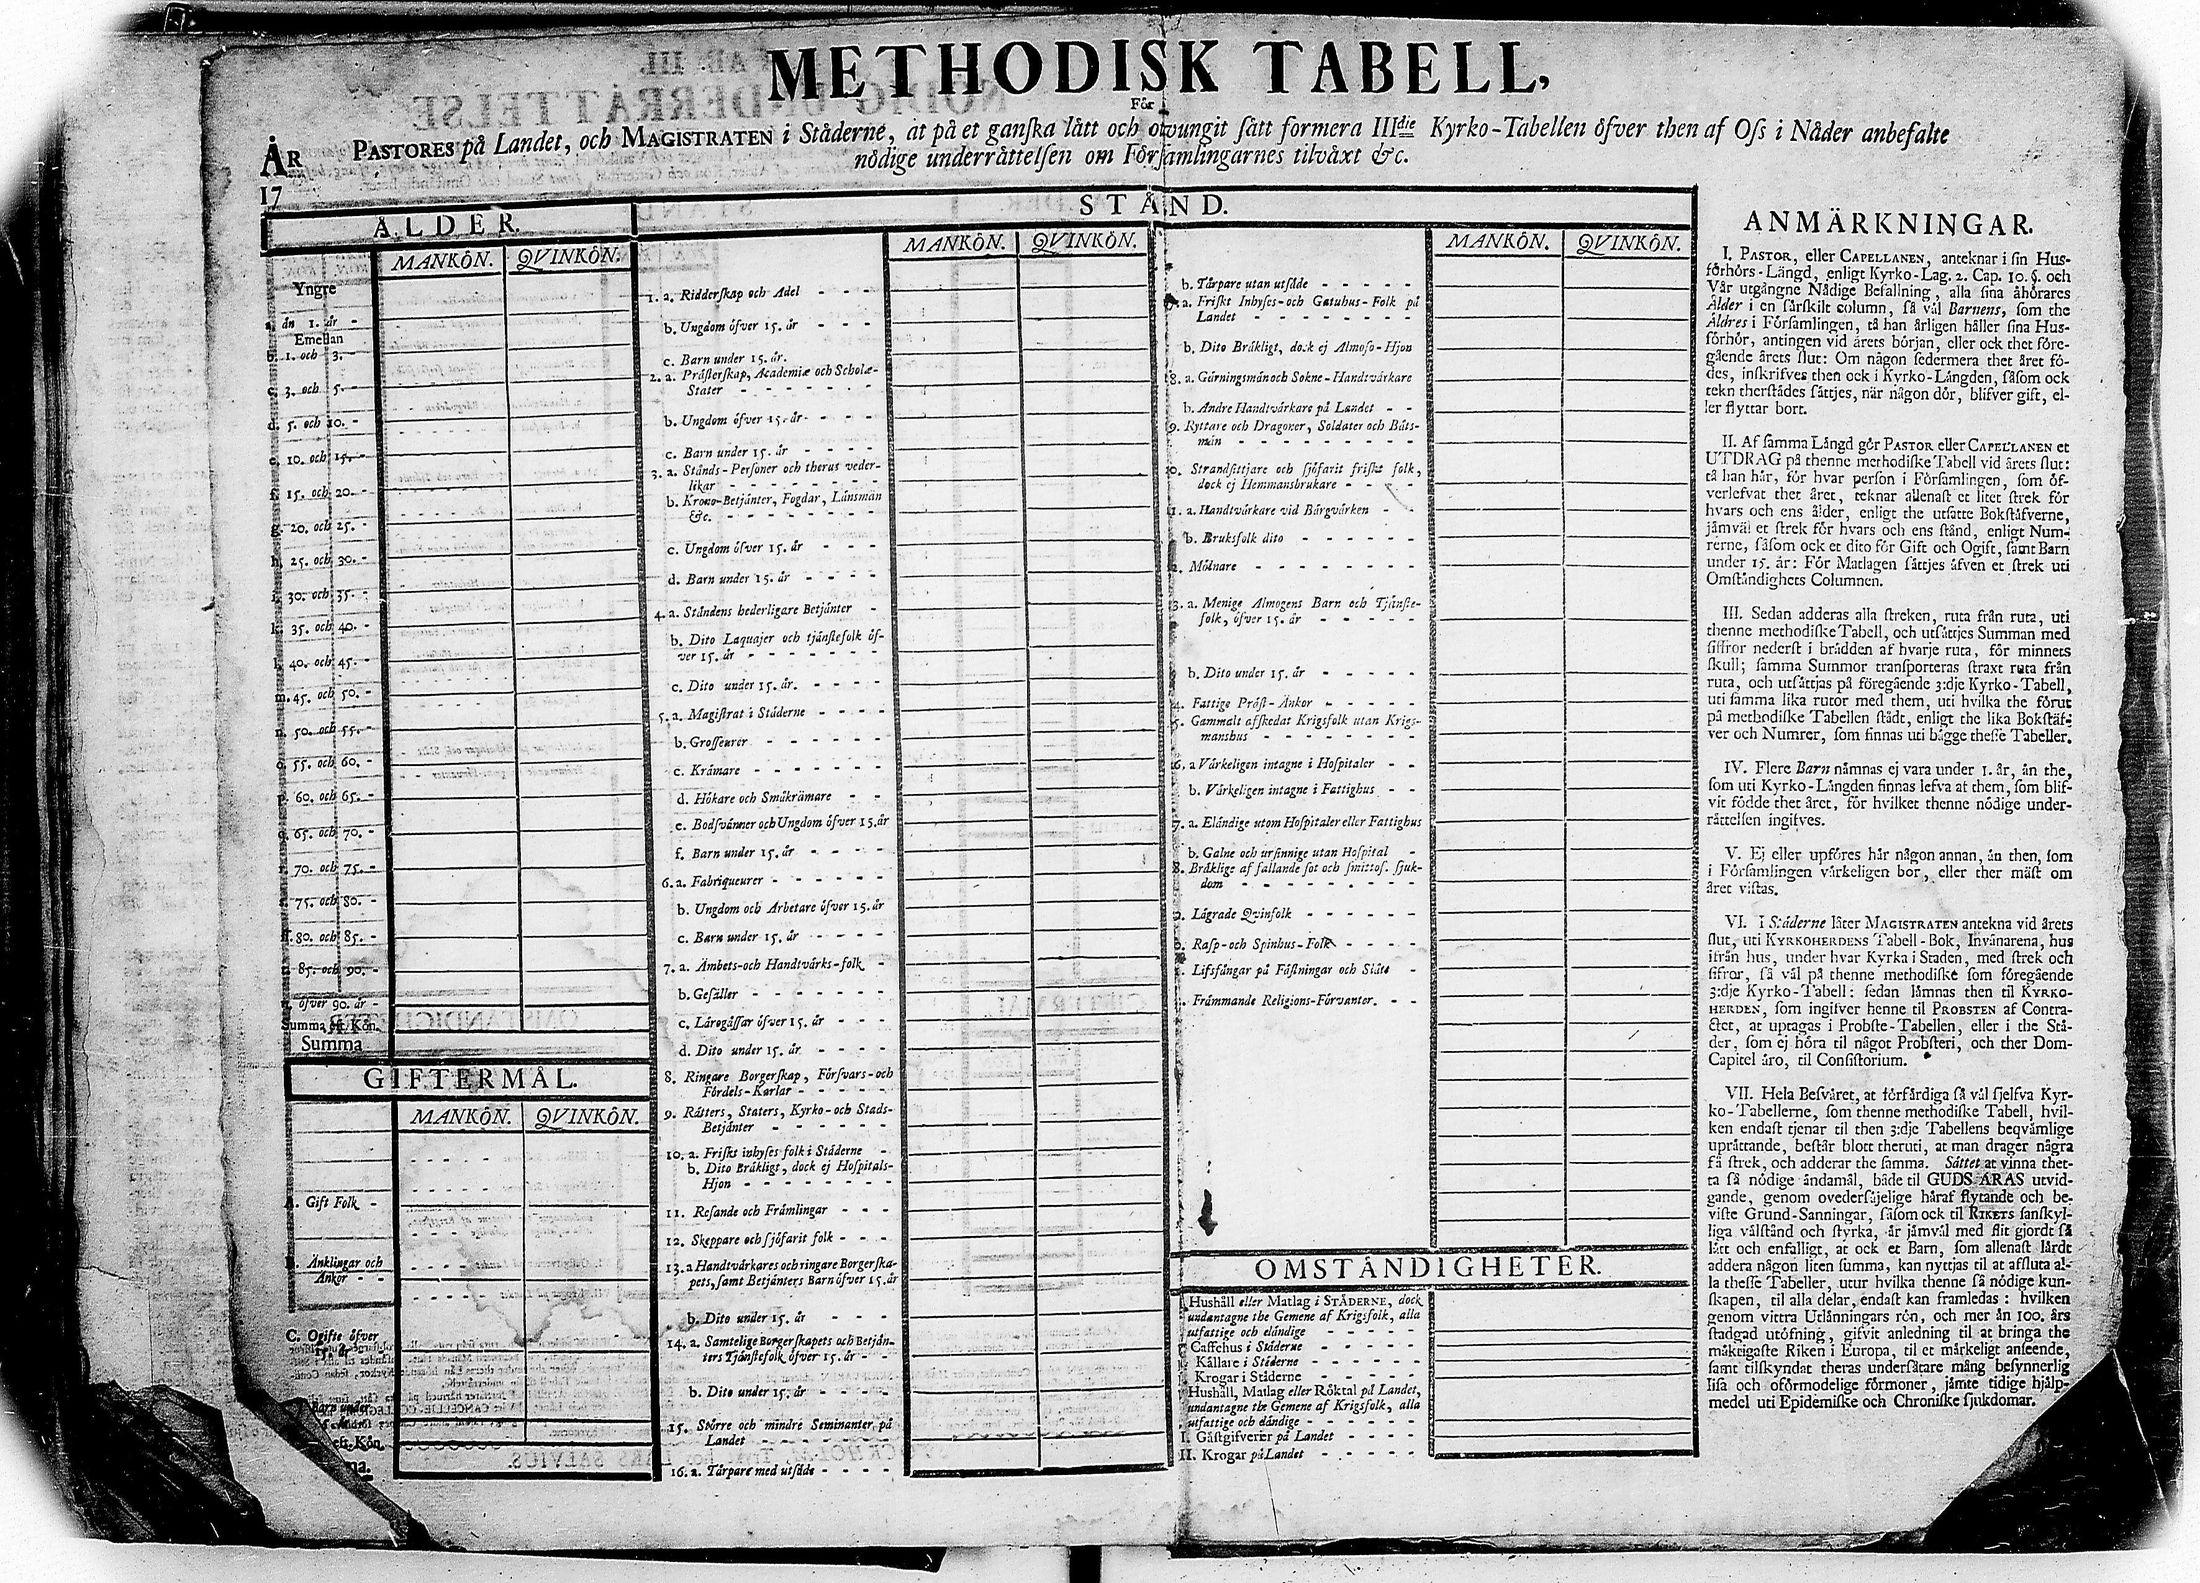 METHODISK TABELL,
För
PASTORES på Landet, och MAGISTRATEN i Städerne, at på et ganska lätt och otvungit sätt formera IIIdie Kyrko-Tabellen öfver then af Oss i Nåder anbefalte
nödige underrättelsen om Församlingarnes tilväxt &c.
ÅR
17
ÅLDER.
MANKÖN. QVINKÖN.
Yngre
a. än 1. år -
Emellan
b. 1. och 3. -
c. 3. och 5. -
d. 5. och 10. -
e. 10. och 15. -
f. 15. och 20. -
g. 20. och 25. -
h. 25. och 30. -
i. 30. och 35. -
k. 35. och 40. -
l. 40. och 45. -
m. 45. och 50. -
n. 50. och 55. -
o. 55. och 60. -
p. 60. och 65. -
q. 65. och 70. -
r. 70. och 75. -
s. 75. och 80. -
ff. 80. och 85. -
t. 85. och 90. -
u. öfver 90. år -
Summa eft. Kön.
Summa
GIFTERMÅL.
MANKÖN. QVINKÖN.
A. Gift Folk -
B. Änklingar och
Änkor - -
C. Ogifte öfver
15. år -
Barn under
eft. Kön.
STÅND.
MANKÖN. QVINKÖN.
1. a. Ridderskap och Adel - - -
b. Ungdom öfver 15. år - - -
c. Barn under 15. år.
2. a. Prästerskap, Academiæ och Scholæ-
Stater - - - - - - -
b. Ungdom öfver 15. år - - - -
c. Barn under 15. år - - - -
3. a. Stånds-Personer och theras veder-
likar - - - - - - -
b. Krono-Betjänter, Fogdar, Länsmän
&c. - - - - - - - -
c. Ungdom öfver 15. år - - -
d. Barn under 15. år - - - -
4. a. Ståndens hederligare Betjänter -
b. Dito Laquajer och tjänstefolk öf-
ver 15. år - - - - - - -
c. Dito under 15. år. - - - -
5. a. Magistrat i Städerne - - - -
b. Grosseurer - - - - - -
c. Krämare - - - - - - -
d. Hökare och Småkrämare - -
e. Bodsvänner och Ungdom öfver 15. år
f. Barn under 15. år - - - -
6. a. Fabriqueurer - - - - - -
b. Ungdom och Arbetare öfver 15. år
c. Barn under 15. år - - - -
7. a. Ämbets-och Handtvärks-folk -
b. Gesäller - - - - - - -
c. Lärogåssar öfver 15. år - - -
d. Dito under 15. år - - - -
8. Ringare Borgerskap, Försvars-och
Fördels-Karlar - - - - -
9. Rätters, Staters, Kyrko-och Stads-
Betjänter - - - - - -
10. a. Friskt inhyses folk i Städerne -
b. Dito Bräkligt, dock ej Hospitals-
Hjon - - - - - - - -
11. Resande och Främlingar - - -
12. Skeppare och sjöfarit folk - - -
13. a Handtvärkares och ringare Borgerska-
pets, samt Betjänters Barn öfver 15. år
b. Dito under 15. år - - -
14. a. Samtelige Borgerskapets och Betjän-
ters Tjänstefolk öfver 15. år -
b. Dito under 15. år - - - -
15. Större och mindre Seminanter på
Landet - - - - - - -
16. a. Tårpare med utsäde - - - -
MANKÖN. QVINKÖN.
b. Tårpare utan utsäde - - - - -
a. Friskt Inhyses-och Gatuhus-Folk på
Landet - - - - - - - -
b. Dito Bräkligt, dock ej Almoso-Hjon
18. a. Gärningsmän och Sokne-Handtvärkare
b. Andre Handtvärkare på Landet - -
9. Ryttare och Dragoner, Soldater och Båts-
män - - - - - - - -
20. Strandsittjare och sjöfarit friske folk,
dock ej Hemmansbrukare - - - -
1. a. Handtvärkare vid Bärgvärken - -
b. Bruksfolk dito - - - - - -
2. Mölnare - - - - - - - -
3. a. Menige Almogens Barn och Tjänste-
folk, öfver 15. år - - - - -
b. Dito under 15. år - - - - -
4. Fattige Präst-Änkor - - - - -
5. Gammalt afskedat Krigsfolk utan Krigs-
manshus - - - - - - -
6. a Värkeligen intagne i Hospitaler - -
b. Värkeligen intagne i Fattighus - -
7. a. Eländige utom Hospitaler eller Fattighus
b. Galne och ursinnige utan Hospital -
8. Bräklige af fallande sot och smittos. sjuk-
dom - - - - - - - -
9. Lägrade Qvinfolk - - - - - -
0. Rasp-och Spinhus-Folk - - - -
Lifsfångar på Fästningar och Slått -
Främmande Religions-Förvanter. - -
OMSTÄNDIGHETER.
Hushåll eller Matlag i STÄDERNE, dock
undantagne the Gemene af Krigsfolk, alla
utfattige och eländige - - - -
Caffehus i Städerne - - - - -
Källare i Städerne - - - - -
Krogar i Städerne - - - - -
Hushåll, Matlag eller Röktal på Landet,
undantagne the Gemene af Krigsfolk, alla
utfattige och eländige - - - - -
I. Gästgifverier på Landet - - - -
II. Krogar på Landet - - - - -
ANMÄRKNINGAR.
I. PASTOR, eller CAPELLANEN, anteknar i sin Hus-
förhörs-Längd, enligt Kyrko-Lag. 2. Cap. 10. §. och
Vår utgångne Nådige Befallning, alla sina åhörares
Ålder i en särskilt column, så väl Barnens, som the
Äldres i Församlingen, tå han årligen håller sina Hus-
förhör, antingen vid årets början, eller ock thet före-
gående årets slut: Om någon sedermera thet året fö-
des, inskrifves then ock i Kyrko-Längden, såsom ock
tekn therstädes sättjes, när någon dör, blifver gift, el-
ler flyttar bort.
II. Af samma Längd gör PASTOR eller CAPELLANEN et
UTDRAG på thenne methodiske Tabell vid årets slut:
tå han här, för hvar person i Församlingen, som öf-
verlefvat thet året, teknar allenast et litet strek för
hvars och ens ålder, enligt the utsatte Bokstäfverne,
jämväl et strek för hvars och ens stånd, enligt Num-
rerne, såsom ock et dito för Gift och Ogift, samt Barn
under 15. år: För Matlagen sättjes äfven et strek uti
Omständighets Columnen.
III. Sedan adderas alla streken, ruta från ruta, uti
thenne methodiske Tabell, och utsättjes Summan med
siffror nederst i brädden af hvarje ruta, för minnets
skull; samma Summor transporteras straxt ruta från
ruta, och utsättjas på föregående 3:dje Kyrko-Tabell,
uti samma lika rutor med them, uti hvilka the förut
på methodiske Tabellen städt, enligt the lika Bokstäf-
ver och Numrer, som finnas uti bägge thesse Tabeller.
IV. Flere Barn nämnas ej vara under 1. år, än the,
som uti Kyrko-Längden finnas lefva af them, som blif-
vit födde thet året, för hvilket thenne nödige under-
rättelsen ingifves.
V. Ej eller upföres här någon annan, än then, som
i Församlingen värkeligen bor, eller ther mäst om
året vistas.
VI. I Städerne låter MAGISTRATEN antekna vid årets
slut, uti KYRKOHERDENS Tabell-Bok, Invånarena, hus
ifrån hus, under hvar Kyrka i Staden, med strek och
sifror, så väl på thenne methodiske som föregående
3:dje Kyrko-Tabell: sedan lämnas then til KYRKO-
HERDEN, som ingifver henne til PROBSTEN af Contra-
ctet, at uptagas i Probste-Tabellen, eller i the Stä-
der, som ej höra til något Probsteri, och ther Dom-
Capitel äro, til Consistorium.
VII. Hela Besväret, at förfärdiga så väl sjelfva Kyr-
ko-Tabellerne, som thenne methodiske Tabell, hvil-
ken endast tjenar til then 3:dje Tabellens beqvämlige
uprättande, består blott theruti, at man drager några
få strek, och adderar the samma. Sättet at vinna thet-
ta så nödige ändamål, både til GUDS ÄRAS utvid-
gande, genom ovedersäjelige häraf flytande och be-
viste Grund-Sanningar, såsom ock til RIKETS sanskyl-
liga välstånd och styrka, är jämväl med flit gjordt så
lätt och enfalligt, at ock et Barn, som allenast lärdt
addera någon liten summa, kan nyttjas til at afsluta al-
la thesse Tabeller, utur hvilka thenne så nödige kun-
skapen, til alla delar, endast kan framledas: hvilken
genom vittra Utlänningars rön, och mer än 100. års
stadgad utöfning, gifvit anledning til at bringa the
mäktigaste Riken i Europa, til et märkeligt anseende,
samt tilskyndat theras undersåtare mång besynnerlig
lisa och oförmodelige förmoner, jämte tidige hjälp-
medel uti Epidemiske och Chroniske sjukdomar.